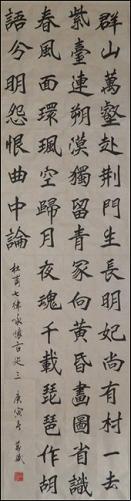 群山萬壑赴荆門生長明妃尚有村一去
紫臺連朔漠獨留青冢向黃昏畫圖省識
春風面環珮空歸月夜魂千載琵琶作胡
語分明怨恨曲中論
杜甫七律咏懷古迹之三 庚寅